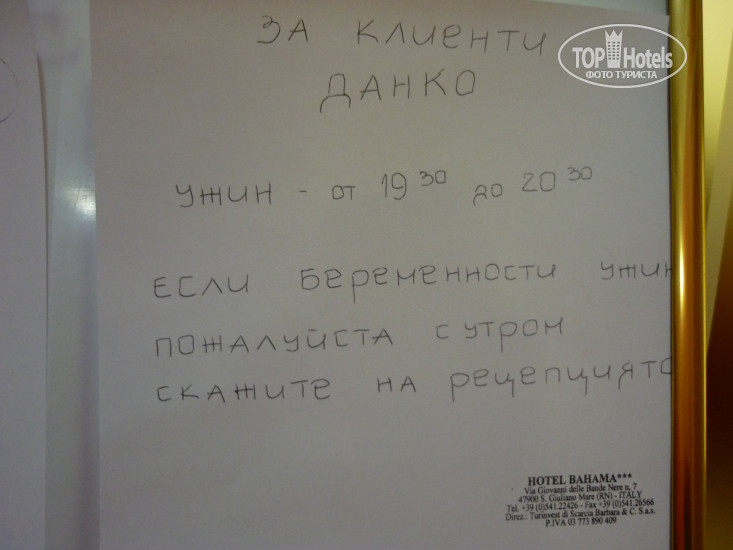 ЗА КЛИЕНТИ
ДАНКО
УЖИН - ОТ 19 30 ДО 20 30
ЕСЛИ БЕРЕМЕННОСТИ УЖИН
ПОЖАЛУЙСТА С УТРОМ
СКАЖИТЕ НА РЕЦЕПЦИЯТО
TOP Hotels
ФОТО ТУРИСТА
HOTEL BAHAMA***
Via Giovanni delle Bande Nere n. 7
47900 S. Giuliano Mare (RN) - ITALY
Tel. +39 (0)541.22426 - Fax +39 (0)541.26566
Direz.: Turinvest di Scarcia Barbara & C. S.a.s.
P.IVA 03 773 890 409